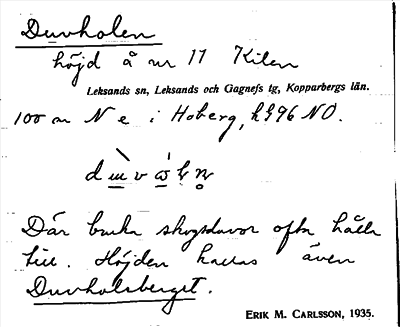 Duvholen
höjd å nr 17 Kilen
Leksands sn, Leksands och Gagnefs tg, Kopparbergs län.
100 m N e i Hoberg, 96 NO.
Där bruka skogsduvor ofta hålla
till. Höjden kallas även
Duvholsberget.
ERIK M. CARLSSON, 1935.